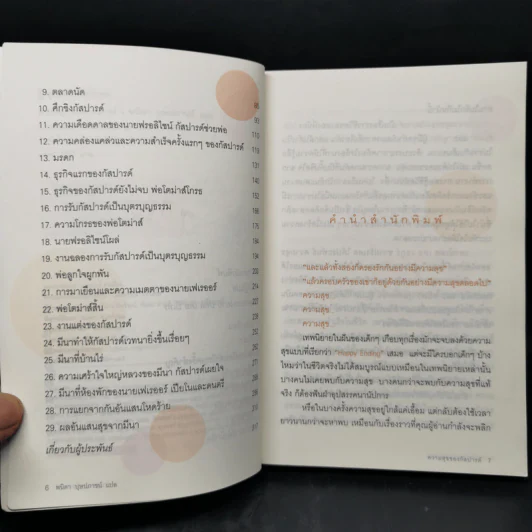 9. ตลาดนัด
10. ศึกชิงกัสปารด์
11. ความเดือดดาลของนายฟรอลิไชน์ กัสปารด์ช่วยพ่อ
12. ความคล่องแคล่วและความสำเร็จครั้งแรกๆ ของกัสปารด์
13. มรดก
14. ธุรกิจแรกของกัสปารด์
15. ธุรกิจของกัสปารด์ยังไม่จบ พ่อโตม่าส์โกรธ
16. การรับกัสปารด์เป็นบุตรบุญธรรม
17. ความโกรธของพ่อโตม่าส์
18. นายฟรอลิไชน์โผล่
19. งานฉลองการรับกัสปารด์เป็นบุตรบุญธรรม
20. พ่อลูกใจผูกพัน
21. การมาเยือนและความเมตตาของนายเฟเรออร์
22. พ่อโตม่าส์สิ้น
23. งานแต่งของกัสปารด์
24. มีนาทำให้กัสปารด์เวทนายิ่งขึ้นเรื่อยๆ
25. มีนาที่บ้านไร่
26. ความเศร้าใจใหญ่หลวงของมีนา กัสปารด์เผยใจ
27. มีนาที่ห้องพักของนายเฟเรออร์ เปียโนและดนตรี
28. การแยกจากกันอันแสนโหดร้าย
29. ผลอันแสนสุขจากมีนา
เกี่ยวกับผู้ประพันธ์
88
91
110
117
131
140
157
167
177
184
190
197
6
คำนำสำนักพิมพ์
"และแล้วทั้งสองก็ครองรักกันอย่างมีความสุข"
"แล้วครอบครัวของเขาก็อยู่ด้วยกันอย่างมีความสุขตลอดไป"
ความสุข
ความสุข
ความสุข
เทพนิยายในฝันของเด็กๆ เกือบทุกเรื่องมักจะจบลงด้วยความ
สุขแบบที่เรียกว่า "Happy Ending" เสมอ แต่จะมีใครบอกเด็กๆ บ้าง
ไหมว่าในชีวิตจริงไม่ได้สมบูรณ์แบบเหมือนในเทพนิยายเหล่านั้น
บางคนไม่เคยพบกับความสุข บางคนกว่าจะพบกับความสุขที่แท้
จริง ก็ต้องฟันฝ่าอุปสรรคนานัปการ
หรือในบางครั้งความสุขอยู่ใกล้แค่เอื้อม แต่กลับต้องใช้เวลา
ยาวนานกว่าจะหาพบ เหมือนกับเรื่องราวที่คุณผู้อ่านกำลังจะพลิก
ความสุขของกัสปารด์ 7